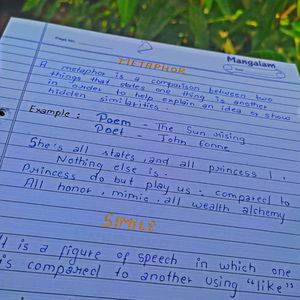 Page No.
Mangalam
METAPHOR
A metaphor is a comparison between two
things that states one thing is another
in order to help explain an idea or show
hidden similarities.
Example : Poem - The Sun rising
Poet - John Donne
She's all states, and all princes I.
Nothing else is.
Princess do but play us : compared to
All honor, mimic, all wealth alchemy
SIMILE
It is a figure of speech in which one
is compared to another using "like",